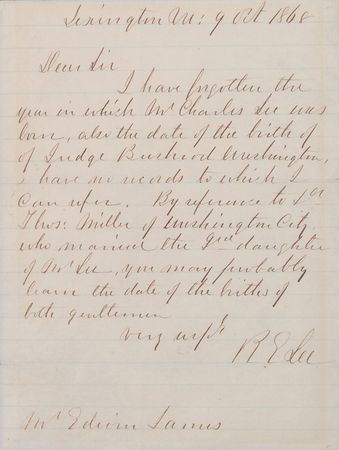 Lexington Va: 9 Oct 1868
Dear Sir
I have forgotten the
year in which Mr Charles Lee was
born, also the date of the birth of
of Judge Bushrod Washington,
I have no records to which I
can refer. By reference to Dr
Thos: Miller of Washington City
who married the Gd daughter
of Mr Lee, you may probably
learn the date of the births of
both gentlemen
Very respt
R E Lee
Mr Edwin James